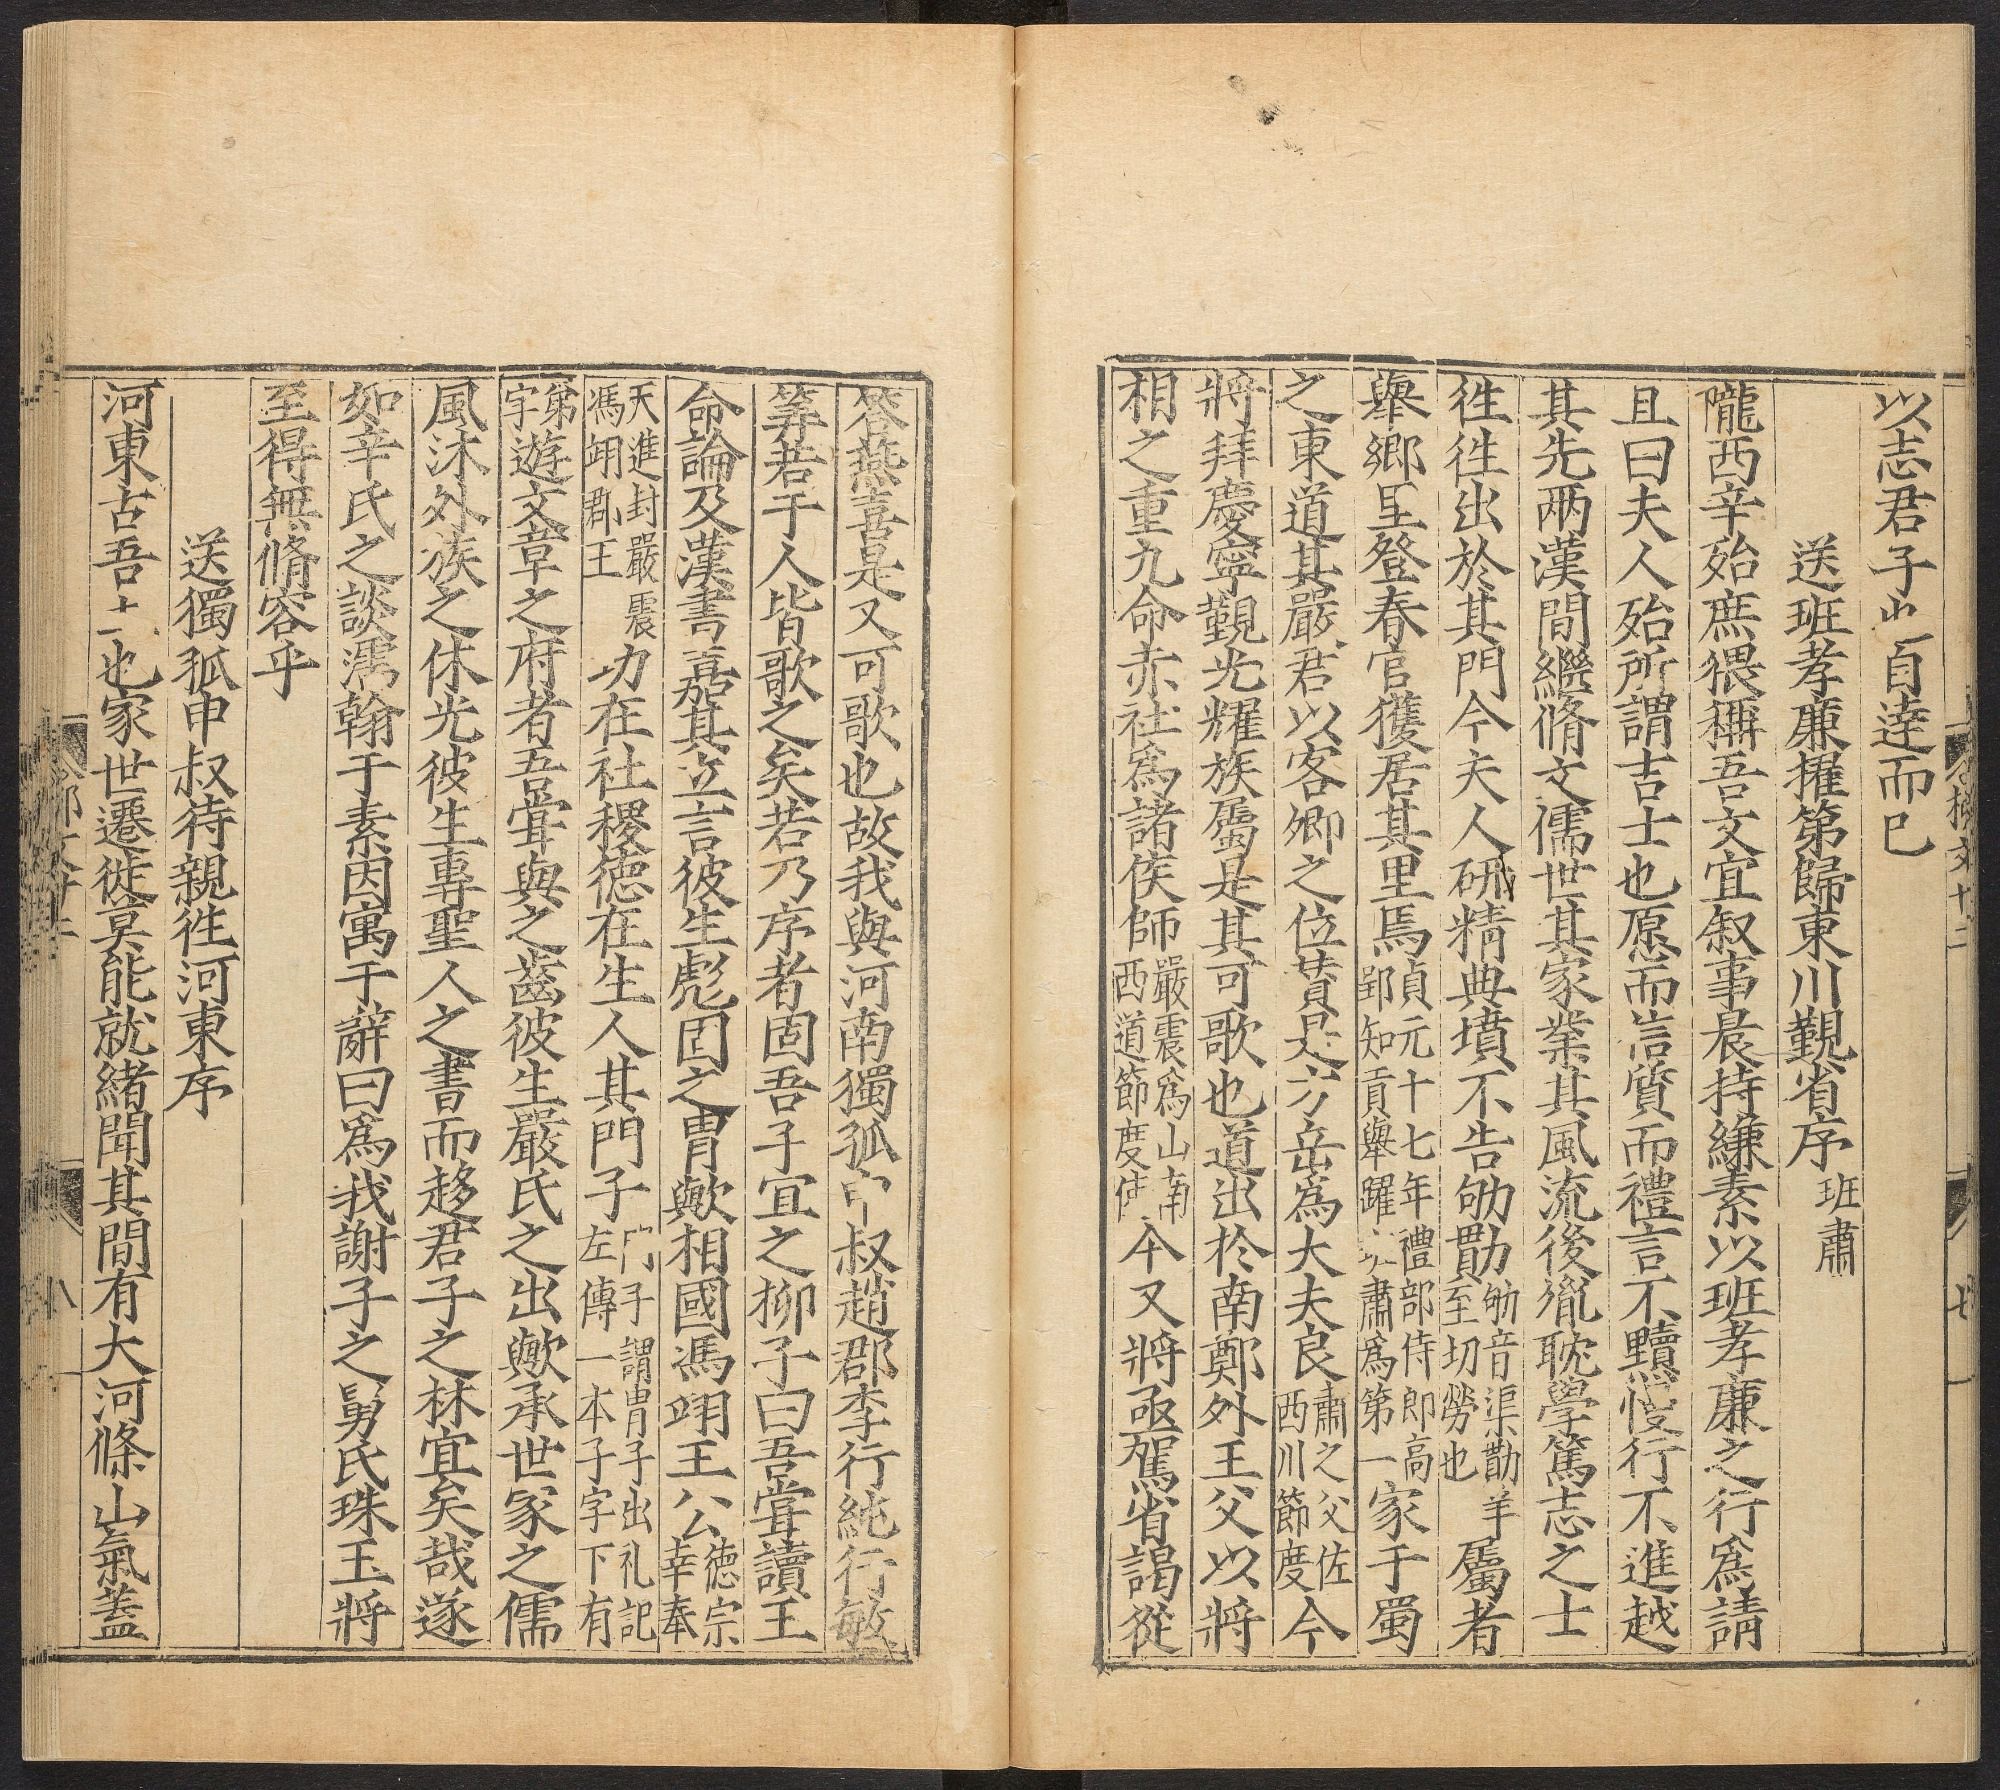 以志君子之自達而已
送班孝廉擢第歸東川覲省序 班肅
隴西辛殆庶猥稱吾文宜叙事晨持縑素以班孝廉之行爲請
且曰夫人殆所謂吉士也愿而信質而禮言不黷慢行不進越
其先兩漢間繼脩文儒世其家業其風流後胤耽學篤志之士
徃徃出於其門今夫人研精典墳不告劬勩劬音渠勩羊至切勞也屬者
舉鄉里登春官獲居其里焉貞元十七年禮部侍郎高郢知貢舉躍肅爲第一家于蜀
之東道其嚴君以客卿之位贊是方岳爲大夫良肅之父佐西川節度今
將拜慶寧覲光耀族屬是其可歌也道出於南鄭外王父以將
相之重九命赤社爲諸侯師嚴震爲山南西道節度使今又將亟駕省謁從
容燕喜是又可歌也故我與河南獨孤申叔趙郡李行純行敏
等若干人皆歌之矣若乃序者固吾子宜之柳子曰吾嘗讀王
命論及漢書嘉其立言彼生彪固之胄歟相國馮翊王公德宗幸奉
天進封嚴震馮翊郡王功在社稷德在生人其門子門子謂胄子出礼記左傳一本子字下有
弟字遊文章之府者吾嘗與之齒彼生嚴氏之出歟承世家之儒
風沐外族之休光彼生專聖人之書而趍君子之林宜矣哉遂
如辛氏之談濡翰于素因寓于辭曰爲我謝子之舅氏珠玉將
至得無脩容乎
送獨孤申叔侍親徃河東序
河東古吾土也家世遷徙莫能就緒聞其間有大河條山氣蓋